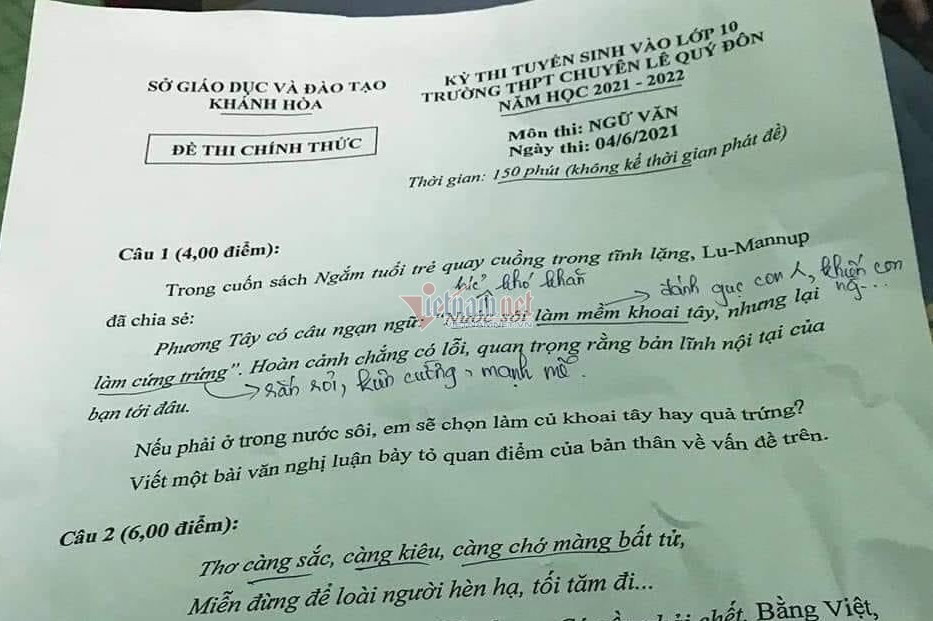 SỞ GIÁO DỤC VÀ ĐÀO TẠO
KHÁNH HÒA
ĐỀ THI CHÍNH THỨC
KỲ THI TUYỂN SINH VÀO LỚP 10
TRƯỜNG THPT CHUYÊN LÊ QUÝ ĐÔN
NĂM HỌC 2021 - 2022
Môn thi: NGỮ VĂN
Ngày thi: 04/6/2021
Thời gian: 150 phút (không kể thời gian phát đề)
Câu 1 (4,00 điểm):
Trong cuốn sách Ngắm tuổi trẻ quay cuồng trong tĩnh lặng, Lu-Mannup
đã chia sẻ:
khó khăn
đánh gục con khiến con
ng...
Vietnamnet
VIETNAMNET.VN
Phương Tây có câu ngạn ngữ: “Nước sôi làm mềm khoai tây, nhưng lại
làm cứng trứng”. Hoàn cảnh chẳng có lỗi, quan trọng rằng bản lĩnh nội tại của
rắn rỏi, kiên cường, mạnh mẽ.
bạn tới đâu.
Nếu phải ở trong nước sôi, em sẽ chọn làm củ khoai tây hay quả trứng?
Viết một bài văn nghị luận bày tỏ quan điểm của bản thân về vấn đề trên.
Câu 2 (6,00 điểm):
Thơ càng sắc, càng kiêu, càng chớ màng bất tử,
Miễn đừng để loài người hèn hạ, tối tăm đi...
chết, Bằng Việt,